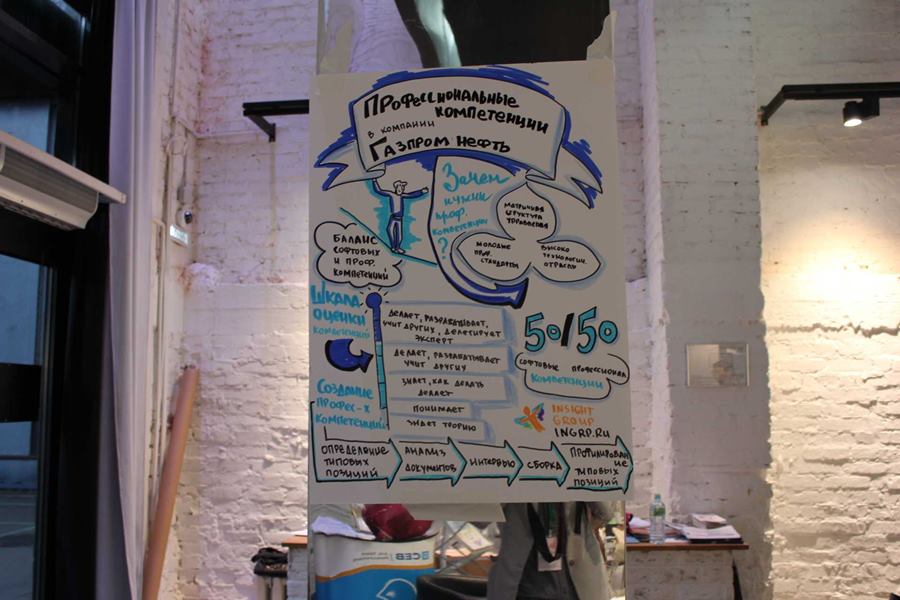 Профессиональные
компетенции
в компании
Газпром нефть
Зачем
нужны
проф.
компетенции
?
матричная
структура
управления
молодые
проф.
стандарты
высоко
технологич.
отрасль
баланс
софтовых
и проф.
компетенций
Шкала
оценки
компетенций
делает, разрабатывает,
учит других, делегирует
эксперт
делает, разрабатывает
учит других
знает, как делать
делает
понимает
знает теорию
50/50
софтовые профессионал
компетенции
INSIGHT
GROUP
INGRP.RU
Создание
професс-х
компетенций
определение
типовых
позиций
анализ
документов
интервью
сборка
профилирован
ие
типовых
позиций
CEB